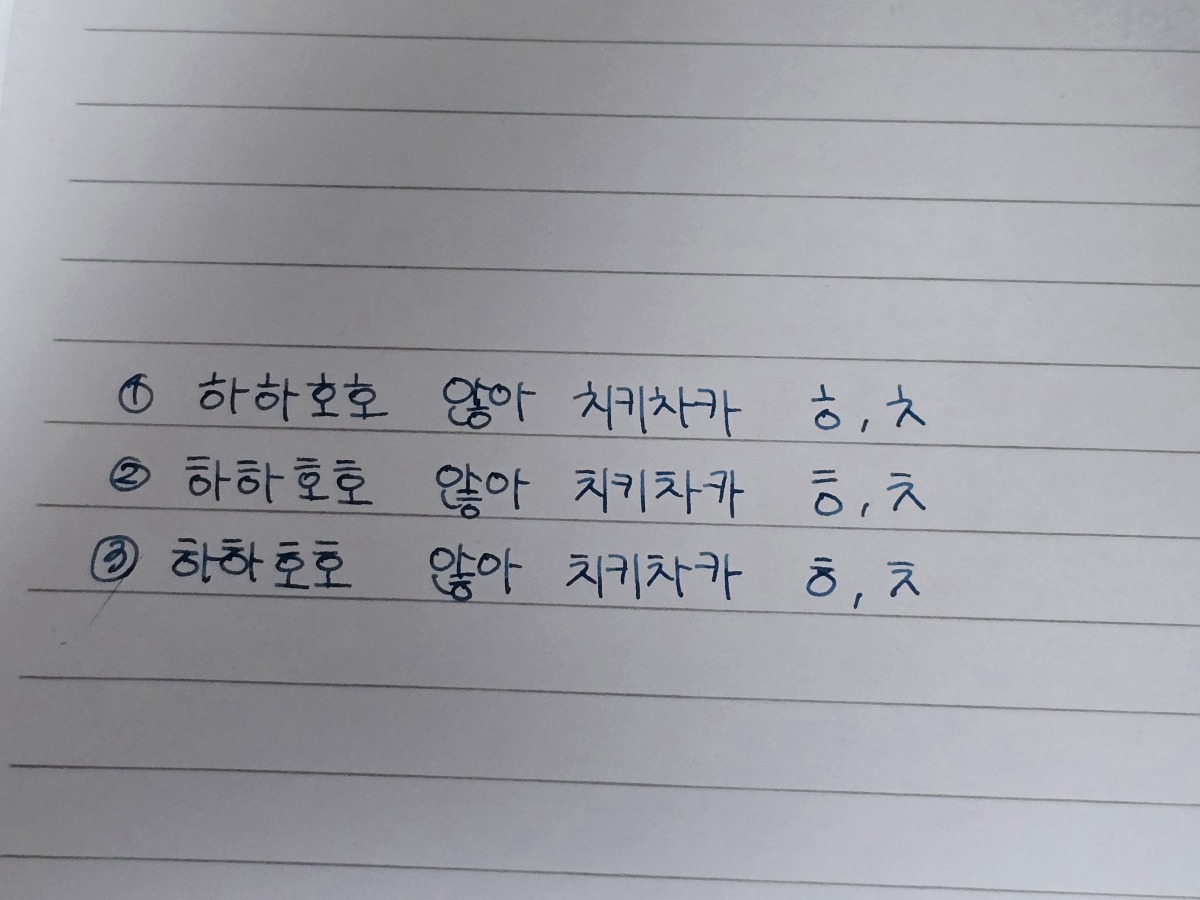 ① 하하호호 않아 치키차카 ㅎ, ㅊ
② 하하호호 않아 치키차카 ㅎ, ㅊ
③ 하하호호 않아 치키차카 ㅎ, ㅊ